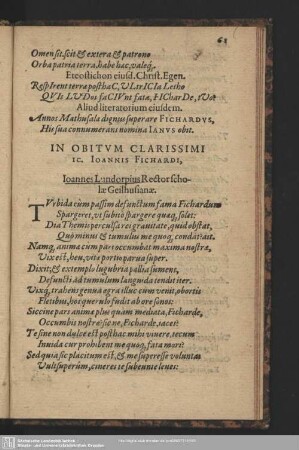 63
Omen sit. scit & extera & patrono
Orba patria terra, habe hæc, valeq́.
Eteostichon eiusd. Christ. Egen.
RespIrent terra posthaC, VLtrICIa Letho
QVIs LVDos faCIVnt fata, FIChar De, tVo?
Aliud literatorium eiusdem.
Annos Mathusala dignus superare FICHARDVS,
Hic sua connumerans nomina IANVS obit.
IN OBITVM CLARISSIMI
IC. IOANNIS FICHARDI,
Ioannes Lundorpius Rector scho-
læ Geilhusianæ.
TVrbida cum passim defunctum fama Fichardum
Spargeret, vt subitò spargere quæq, solet:
Dia Themis perculsa rei grauitate, quid obstat,
Quò minus & tumulus me quoq; condat? ait.
Namq, anima cum pars occumbat maxima nostræ,
Vix est, heu, vitæ portio parua super.
Dixit; & extemplo lugubria pallia sumens,
Defuncti ad tumulum languida tendit iter.
Vixq, trahens genua ægra illuc cum venit, obortis
Fletibus, hos querulo fudit ab ore sonos:
Siccine pars animæ plus quam mediata, Ficharde,
Occumbis nostræ? sic ne, Ficharde, iaces?
Te sine non dulce est posthac mihi viuere, tecum
Inuida cur prohibent me quoq, fata mori?
Sed quia sic placitum est, & me superesse voluntas
Vult superûm, cineres te subeunte leues: